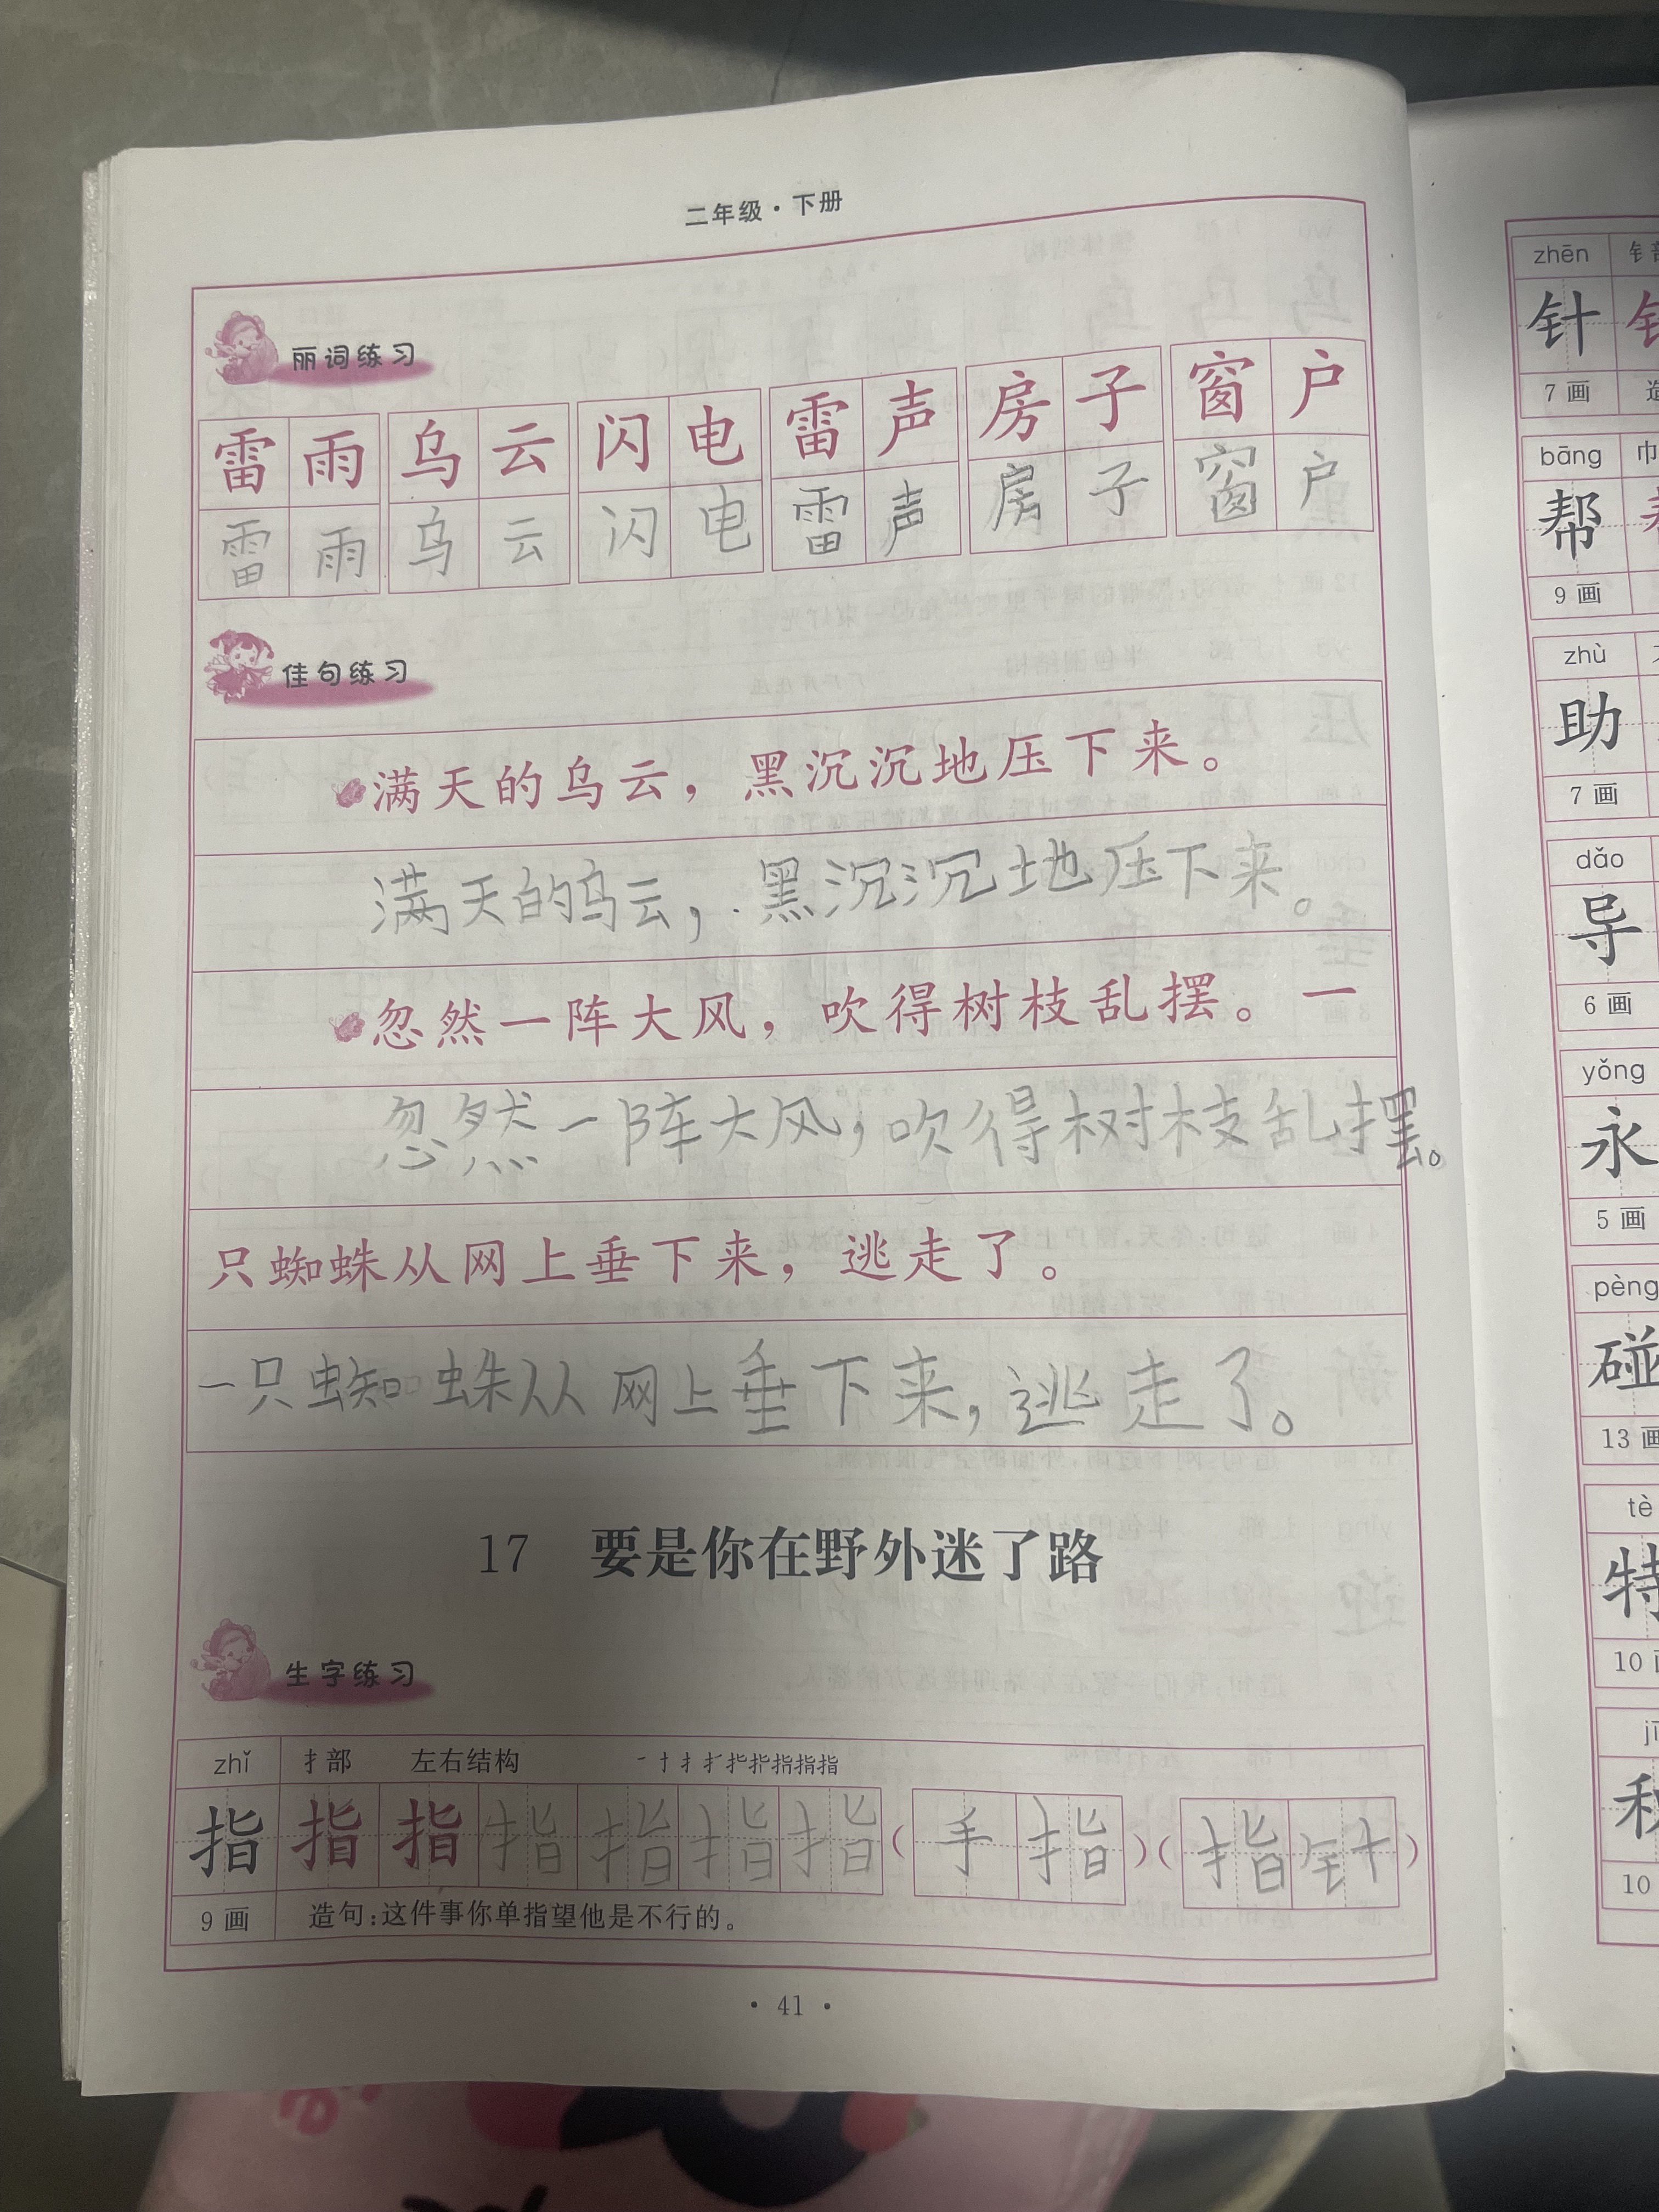 二年级·下册
丽词练习
雷雨 乌云 闪电 雷声 房子 窗户
雷雨 乌云 闪电 雷声 房子 窗户
佳句练习
满天的乌云，黑沉沉地压下来。
满天的乌云，黑沉沉地压下来。
忽然一阵大风，吹得树枝乱摆。一
忽然一阵大风，吹得树枝乱摆。
只蜘蛛从网上垂下来，逃走了。
一只蜘蛛从网上垂下来，逃走了。
17 要是你在野外迷了路
生字练习
zhǐ 扌部 左右结构
指 指 指 指 指 指 指（手指）（指针）
9画 造句：这件事你单指望他是不行的。
·41·
zhēn 钅部
针
7画 造
bāng 巾
帮
9画
zhù
助
7画
dǎo
导
6画
yǒng
永
5画
pèng
碰
13画
tè
特
10画
10